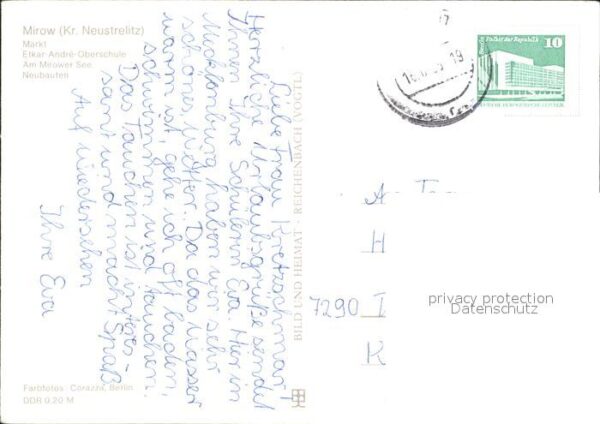 Mirow (Kr. Neustrelitz)
Markt
Etkar-André-Oberschule
Am Mirower See
Neubauten
Liebe Frau Kretzschmar!
Herzliche Urlaubsgrüße sendet
Ihnen Ihre Schülerin Eva. Hier in
Mecklenburg haben wir sehr
schönes Wetter. Da das Wasser
warm ist, gehe ich oft baden,
schwimmen und tauchen.
Das Tauchen ist interes-
sant und macht Spaß
Auf Wiedersehen
Ihre Eva
Farbfotos: Corazza, Berlin
DDR 0,20 M
BILD UND HEIMAT REICHENBACH (VOGTL)
Palast der Republik
10
19
A
H
7290 I
K
privacy protection
Datenschutz